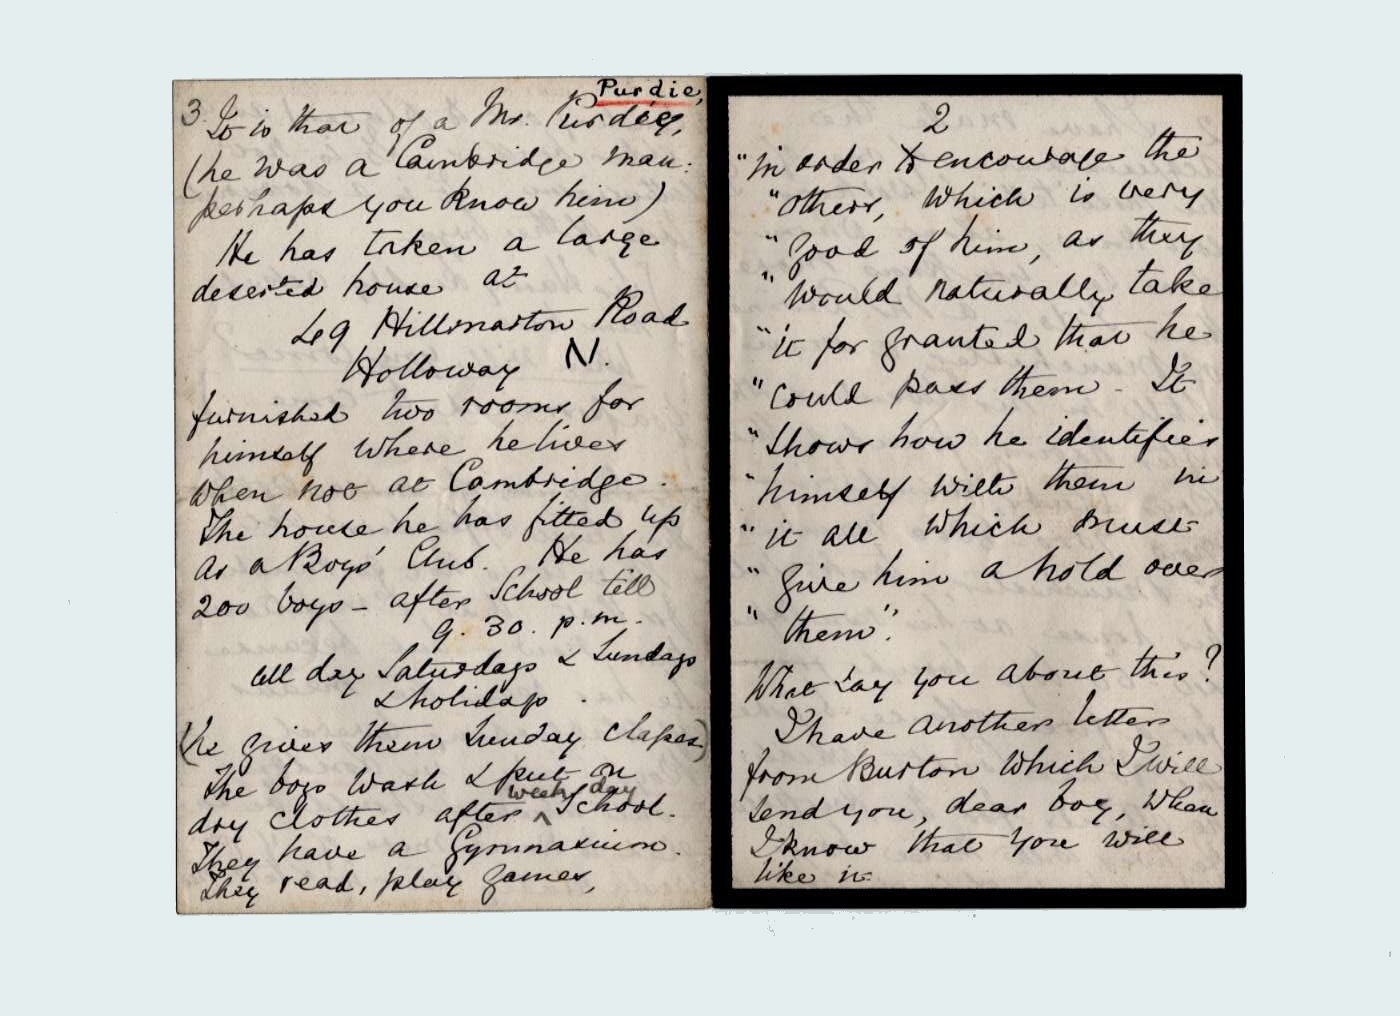 Purdie,
3. It is that of a Mr. Purdey,
(he was a Cambridge man.
perhaps you know him)
He has taken a large
deserted house at
Hillmarton Road
Holloway N.
furnished two rooms for
himself where he lives
when not at Cambridge.
The house he has fitted up
as a Boys' Club. He has
200 boys – after School till
9. 30. p.m.
all day Saturdays & Sundays
& holidays.
(he gives them Sunday classes)
The boys wash & put on
week day
dry clothes after ^ School.
They have a Gymnasium.
They read, play games,
2
"in order to encourage the
"others, which is very
"good of him, as they
"would naturally take
"it for granted that he
"could pass them – It
"shows how he identifies
"himself with them in
"it all which must
"give him a hold over
"them".
What say you about this?
I have another letter
from Burton which I will
send you, dear boy, when
I know that you will
like it